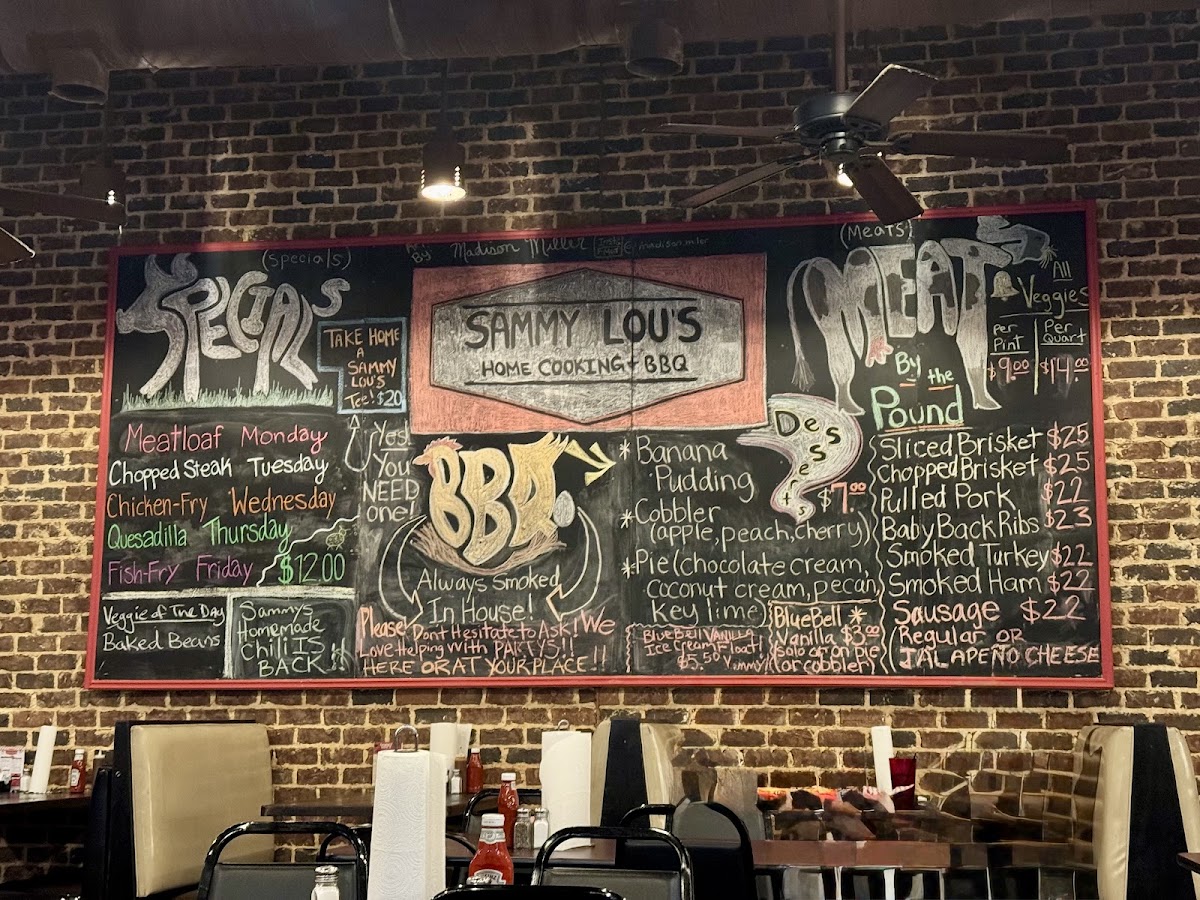 Art By Madison Miller
(Specials)
SPECIALS
TAKE HOME
A
SAMMY
LOU'S
Tee! $20
Yes!
You
NEED
one!
Meatloaf Monday
Chopped Steak Tuesday
Chicken-Fry Wednesday
Quesadilla Thursday
Fish-Fry Friday $12.00
Veggie of The Day
Baked Beans
Sammy's
Homemade
Chili IS
BACK!!
SAMMY LOU'S
HOME COOKING + BBQ
BBQ
Always Smoked
In House!
Please! Dont Hesitate to Ask! We
Love Helping With PARTYS!!
HERE OR AT YOUR PLACE!!
Desserts
$7.00
* Banana
Pudding
* Cobbler
(apple, peach, cherry)
* Pie (chocolate cream,
coconut cream, pecan,
key lime)
BlueBell VANILLA
Ice Cream Float!
$5.50 Yummy!
BlueBell *
Vanilla $3.00
(solo or on pie
(or cobbler)
(Meats)
MEATS
By the
Pound
All
Veggies
Per
Pint
$9.00
Per
Quart
$14.00
Sliced Brisket $25
Chopped Brisket $25
Pulled Pork $22
Baby Back Ribs $23
Smoked Turkey $22
Smoked Ham $22
Sausage $22
Regular OR
JALAPEÑO CHEESE